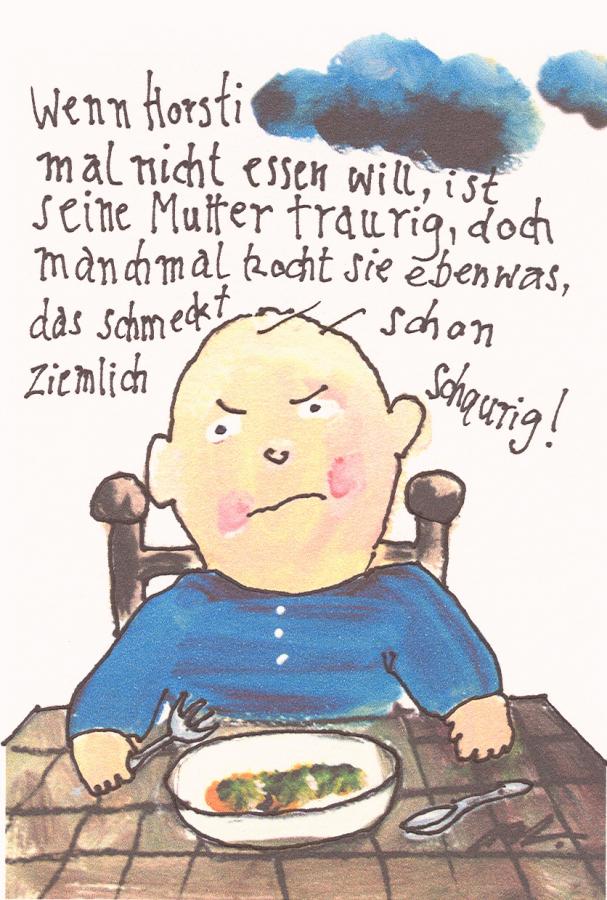 Wenn Horsti
mal nicht essen will, ist
seine Mutter traurig, doch
manchmal kocht sie eben was,
das schmeckt schon
ziemlich schaurig!